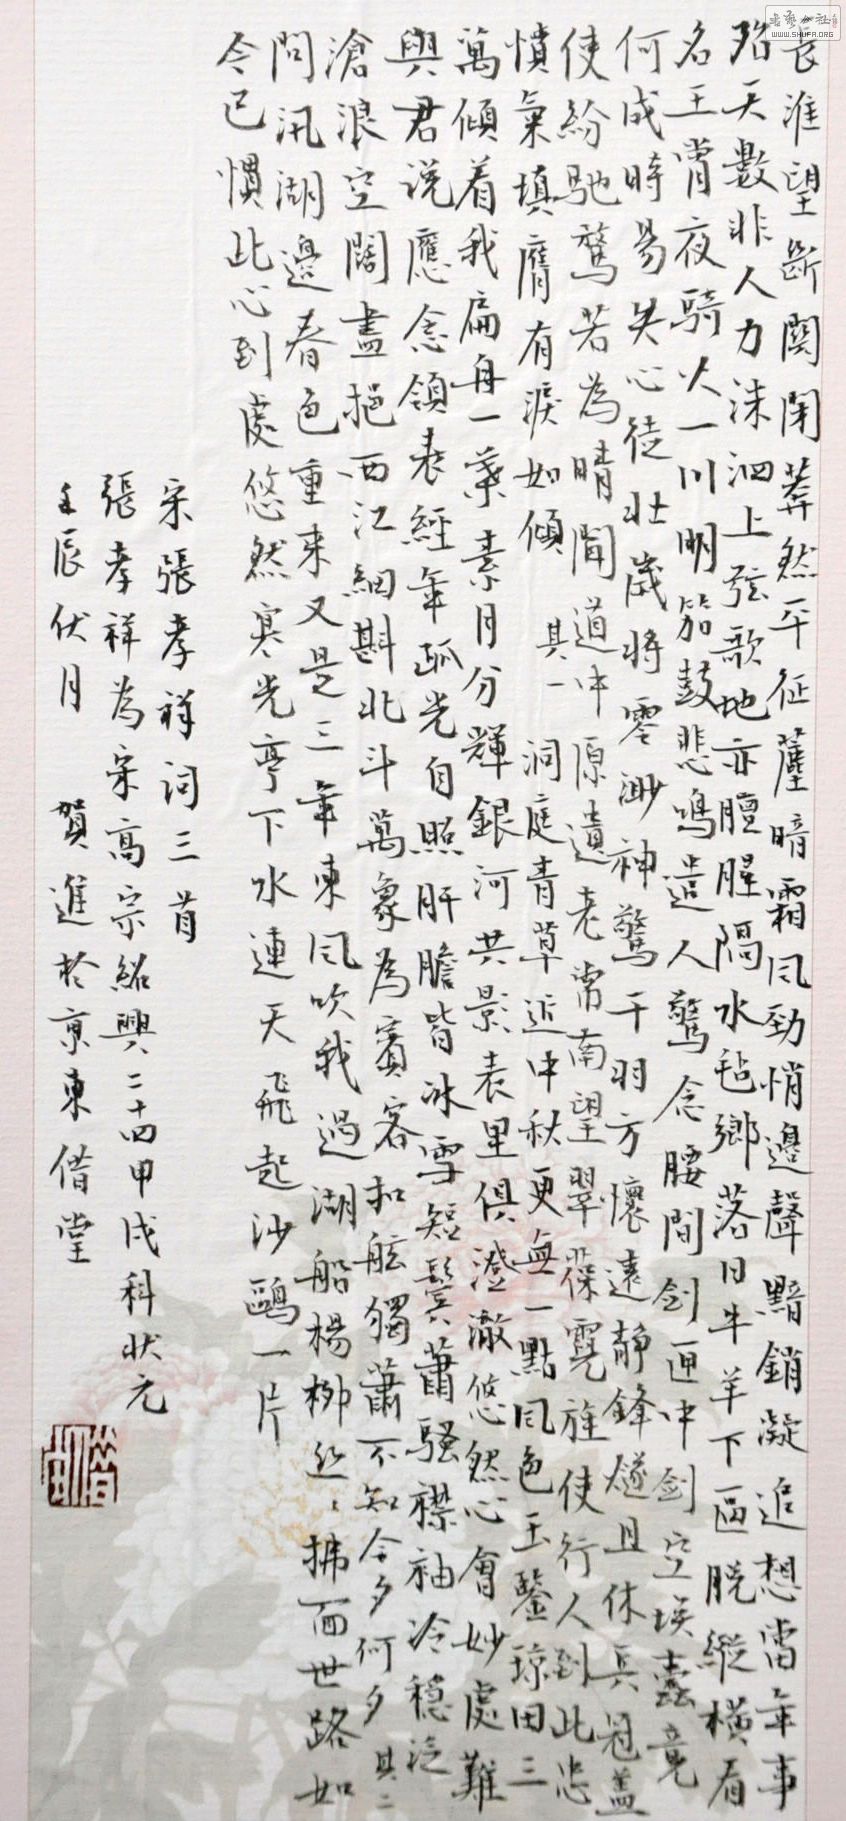 長淮望斷關閉莽然平征塵暗霜風勁悄邊聲黯銷凝追想當年事
殆天數非人力洙泗上弦歌地亦膻腥隔水氈鄉落日牛羊下區脫縱橫看
名王宵夜騎火一川明笳鼓悲鳴遣人驚念腰間劍匣中劍空埃蠹竟
何成時易失心徒壯歲將零渺神驚干羽方懷遠靜鋒燧且休兵冠蓋
使紛馳鶩若為晴聞道中原遺老常南望翠葆霓旌使行人到此忠
憤氣填膺有淚如傾 其一 洞庭青草近中秋更無一點風色玉鑒瓊田三
萬傾着我扁舟一葉素月分輝銀河共影表里俱澄澈悠然心會妙處難
與君說應念領表經年孤光自照肝膽皆冰雪短鬢蕭騷襟袖冷穩泛
滄浪空闊盡挹西江細斟北斗萬象為賓客扣舷獨蕭不知今夕何夕 其二
問汛湖邊春色重來又是三年東風吹我過湖船楊柳絲〻拂面世路如
今已慣此心到處悠然寒光亭下水連天飛起沙鷗一片
宋張孝祥詞三首
張孝祥為宋高宗紹興二十四甲戌科狀元
壬辰伏月 賀進於京東借堂
書藝公社
WWW.SHUFA.ORG